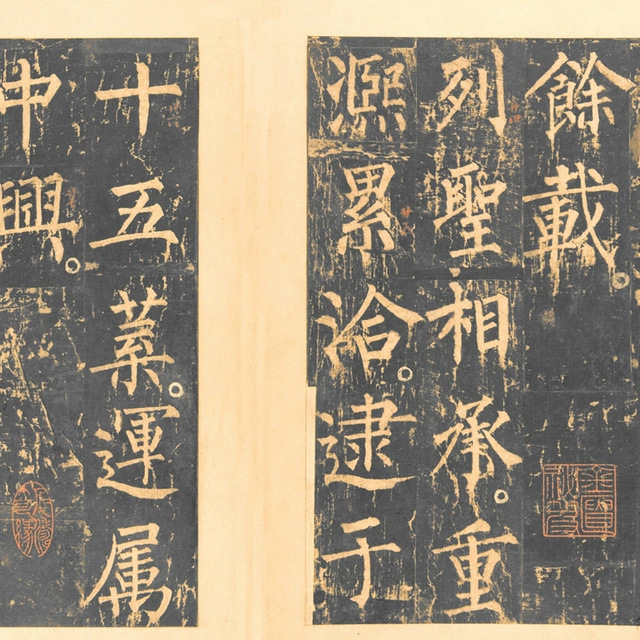 餘載。
列聖相承。重
凞累洽。逮于
十五葉。運属
中興。